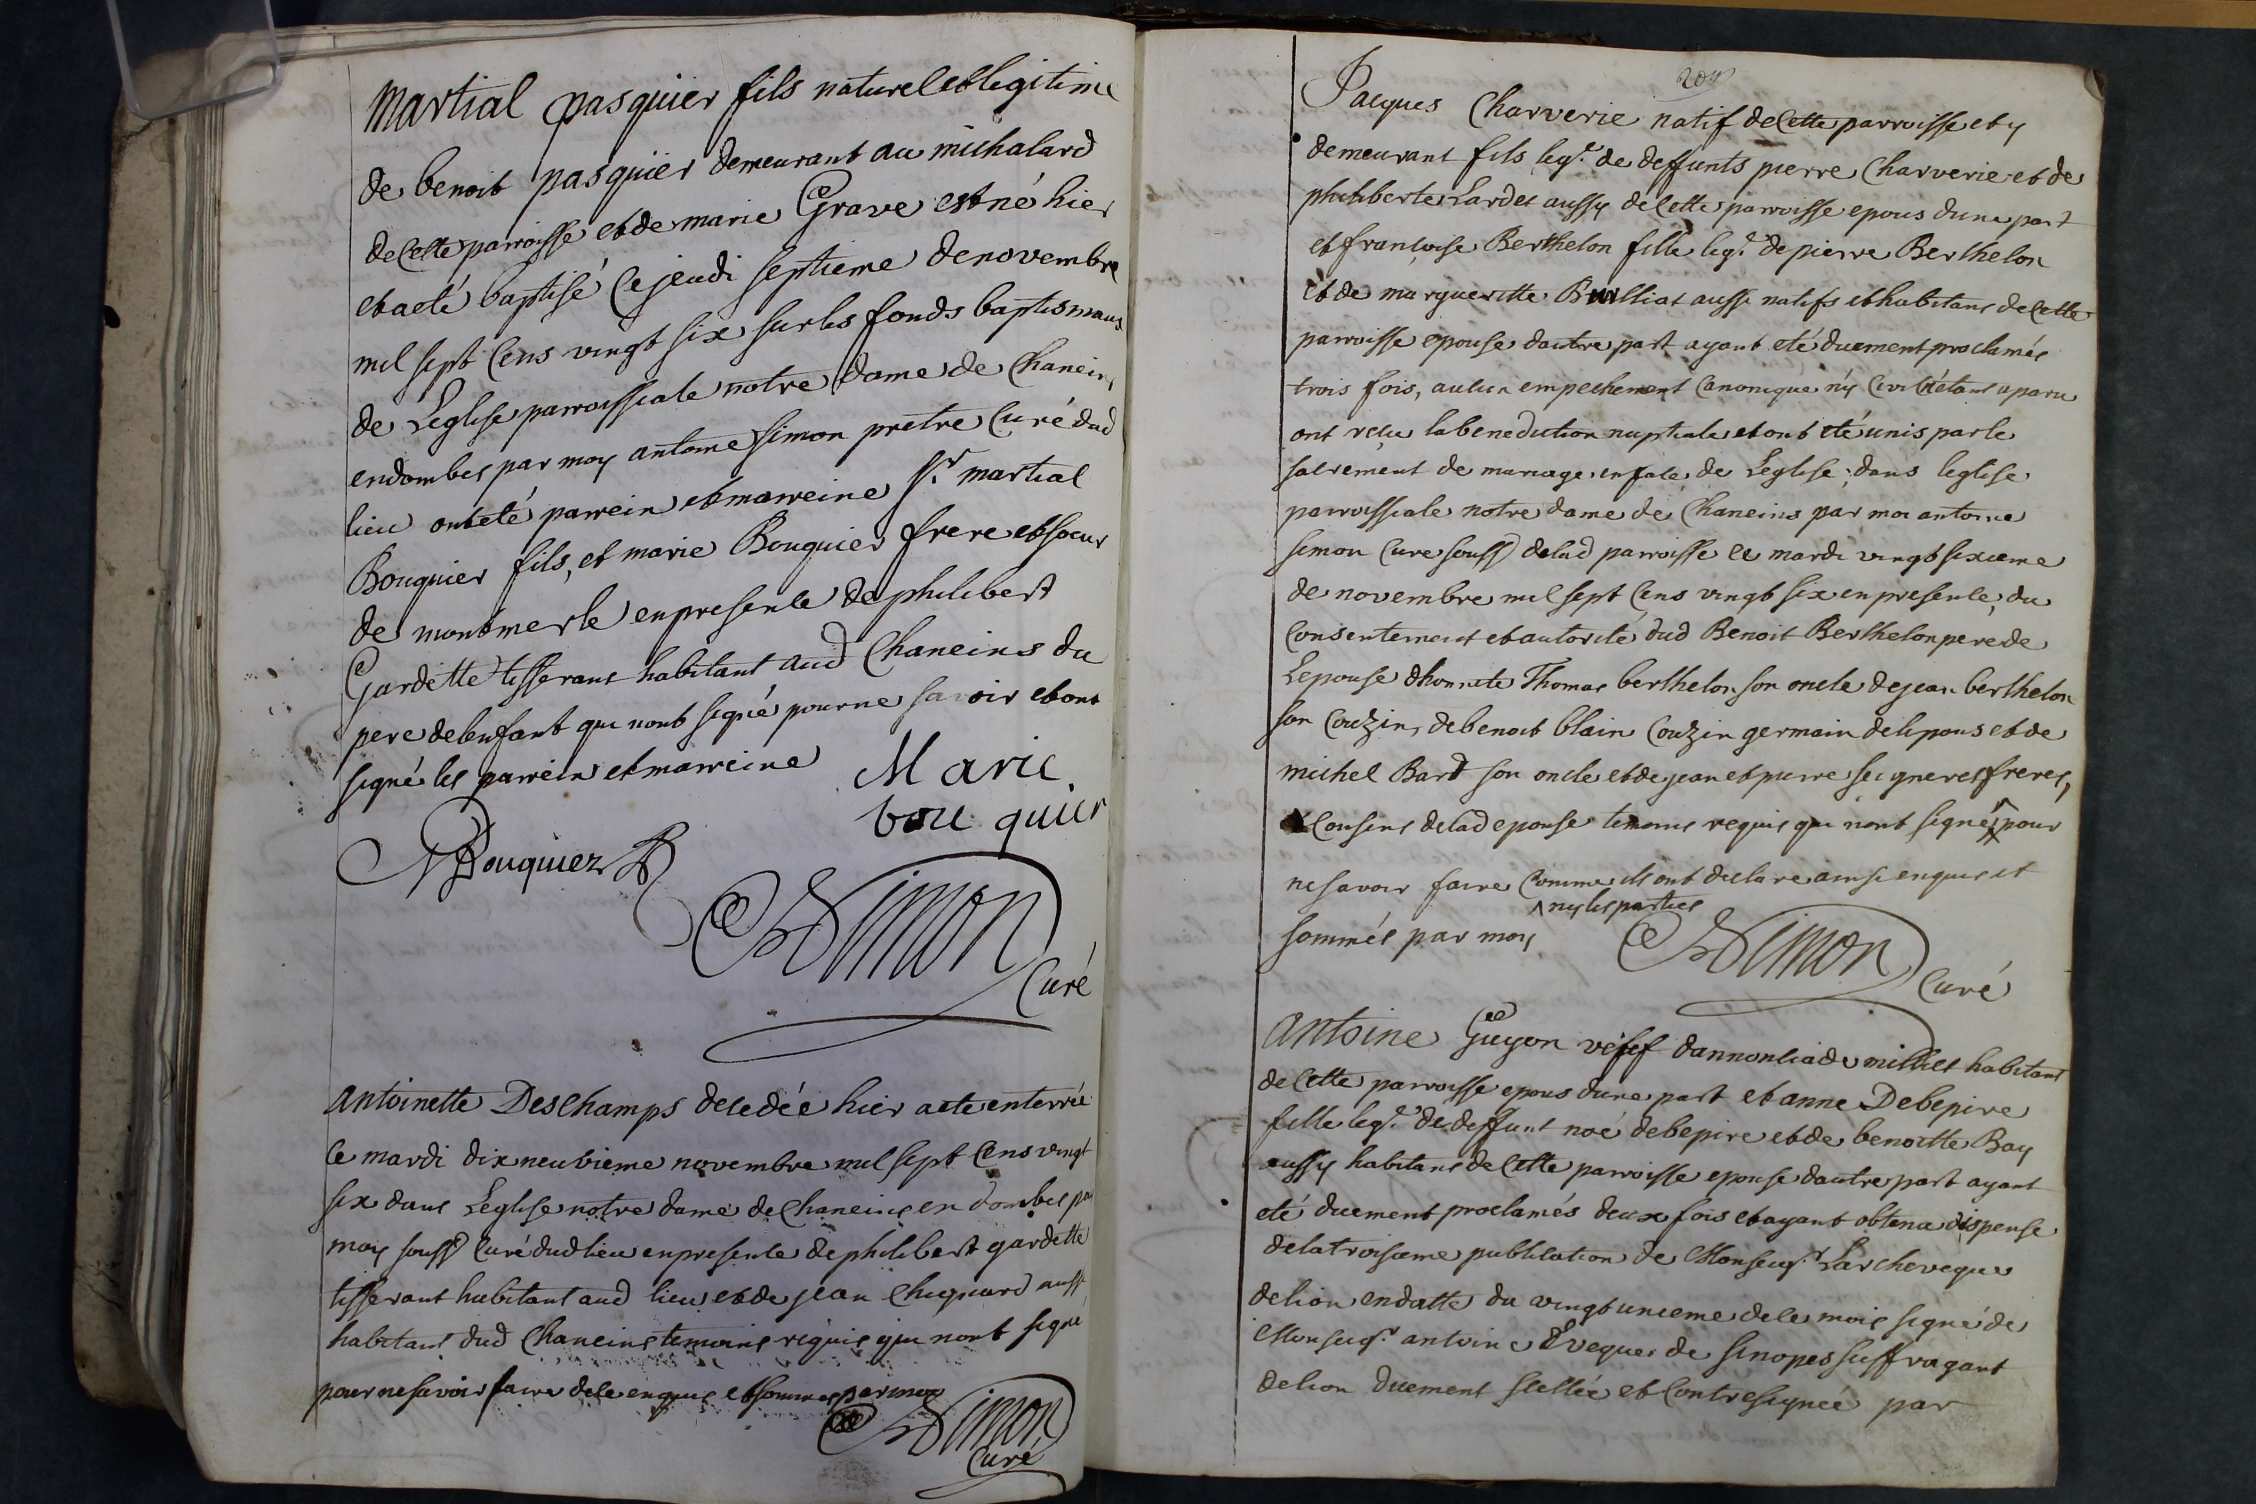 Martial pasquier fils naturel et legitime
de benoit pasquier demeurant au michalard
de Cette parroisse et de marie Grave est né hier
et a eté baptisé Ce jeudi septieme de novembre
mil sept Cens vingt six sur les fonds baptismaux
de L'eglise parroissiale notre dame de Chaneins
en dombes par moy antoine simon pretre Curé dud
lieu ont eté parrein et marreine Sr. martial
Bouquier fils, et marie Bouquier frere et soeur
de montmerle en presence de philibert
Gardette tisserant habitant aud Chaneins du
pere de l'enfant qui n'ont signé pour ne savoir et ont
signé les parrein et marreine
Marie
bou quier
Bouquiez
Simon
Curé
Antoinette Deschamps decedée hier a eté enterrée
Ce mardi dix neuvieme novembre mil sept Cens vingt
six dans L'eglise notre dame de Chaneins en dombes par
moy soussd Curé dud lieu en presence de philibert gardette
tisserant habitant aud lieu et de jean Chiquard aussi
habitant dud Chaneins temoins requis qui n'ont signé
pour ne savoir faire de ce enquis et sommes par moy
Simon
Curé
204
Jacques Charverie natif de Cette parroisse et y
demeurant fils leg.e de deffunts pierre Charverie et de
philiberte Lardet aussy de Cette parroisse epous d'une part
et francoise Berthelon fille leg.e de pierre Berthelon
et de marguerite Bruilliat aussi natifs et habitans de Cette
parroisse epouse d'autre part ayant eté duement proclamés
trois fois, aucun empechement Canonique n'y Civil n'etant aparu
ont reçu la benediction nuptiale et ont eté unis par le
sacrement de mariage en face de L'eglise, dans l'eglise
parroissiale notre dame de Chaneins par moi antoine
simon Curé soussd de lad parroisse Ce mardi vingt sixieme
de novembre mil sept Cens vingt six en presence, du
Consentement et autorité dud Benoit Berthelon pere de
L'epouse d'honnete Thomas berthelon son oncle de jean berthelon
son Couzin, de benoit blain Couzin germain de l'epous et de
michel Bard son oncle et de jean et pierre seigneret freres,
Cousins de lad epouse temoins requis qui n'ont signé ^ pour
ne savoir faire Comme ils ont declaré ainsi enquis et
^ ny les parties
sommés par moy
Simon
Curé
Antoine Guyon vefef d'annonciade milliet habitant
de Cette parroisse epous d'une part et anne Debepire
fille leg.e de deffunt noé debepire et de benoitte Bay
aussy habitans de Cette parroisse epouse d'autre part ayant
eté duement proclamés deux fois et ayant obtenu dispense
de la troisieme publication de Monseig.r L'archeveque
de lion en datte du vingt unieme de ce mois signé de
Monseig.r antoine Eveque de sinopes suffragant
de lion duement scellée et Contresignée par